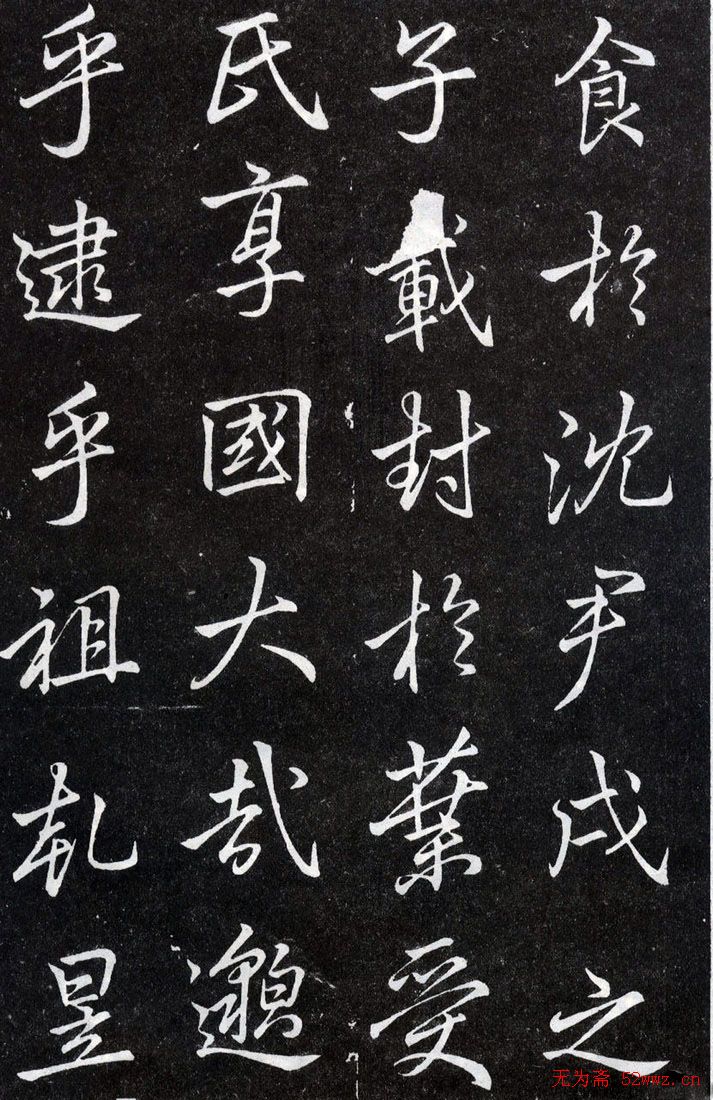 食於沈尹戌之
子載封於葉受
氏享國大哉邈
乎逮乎祖乾昱
无为斋 52wwz.cn